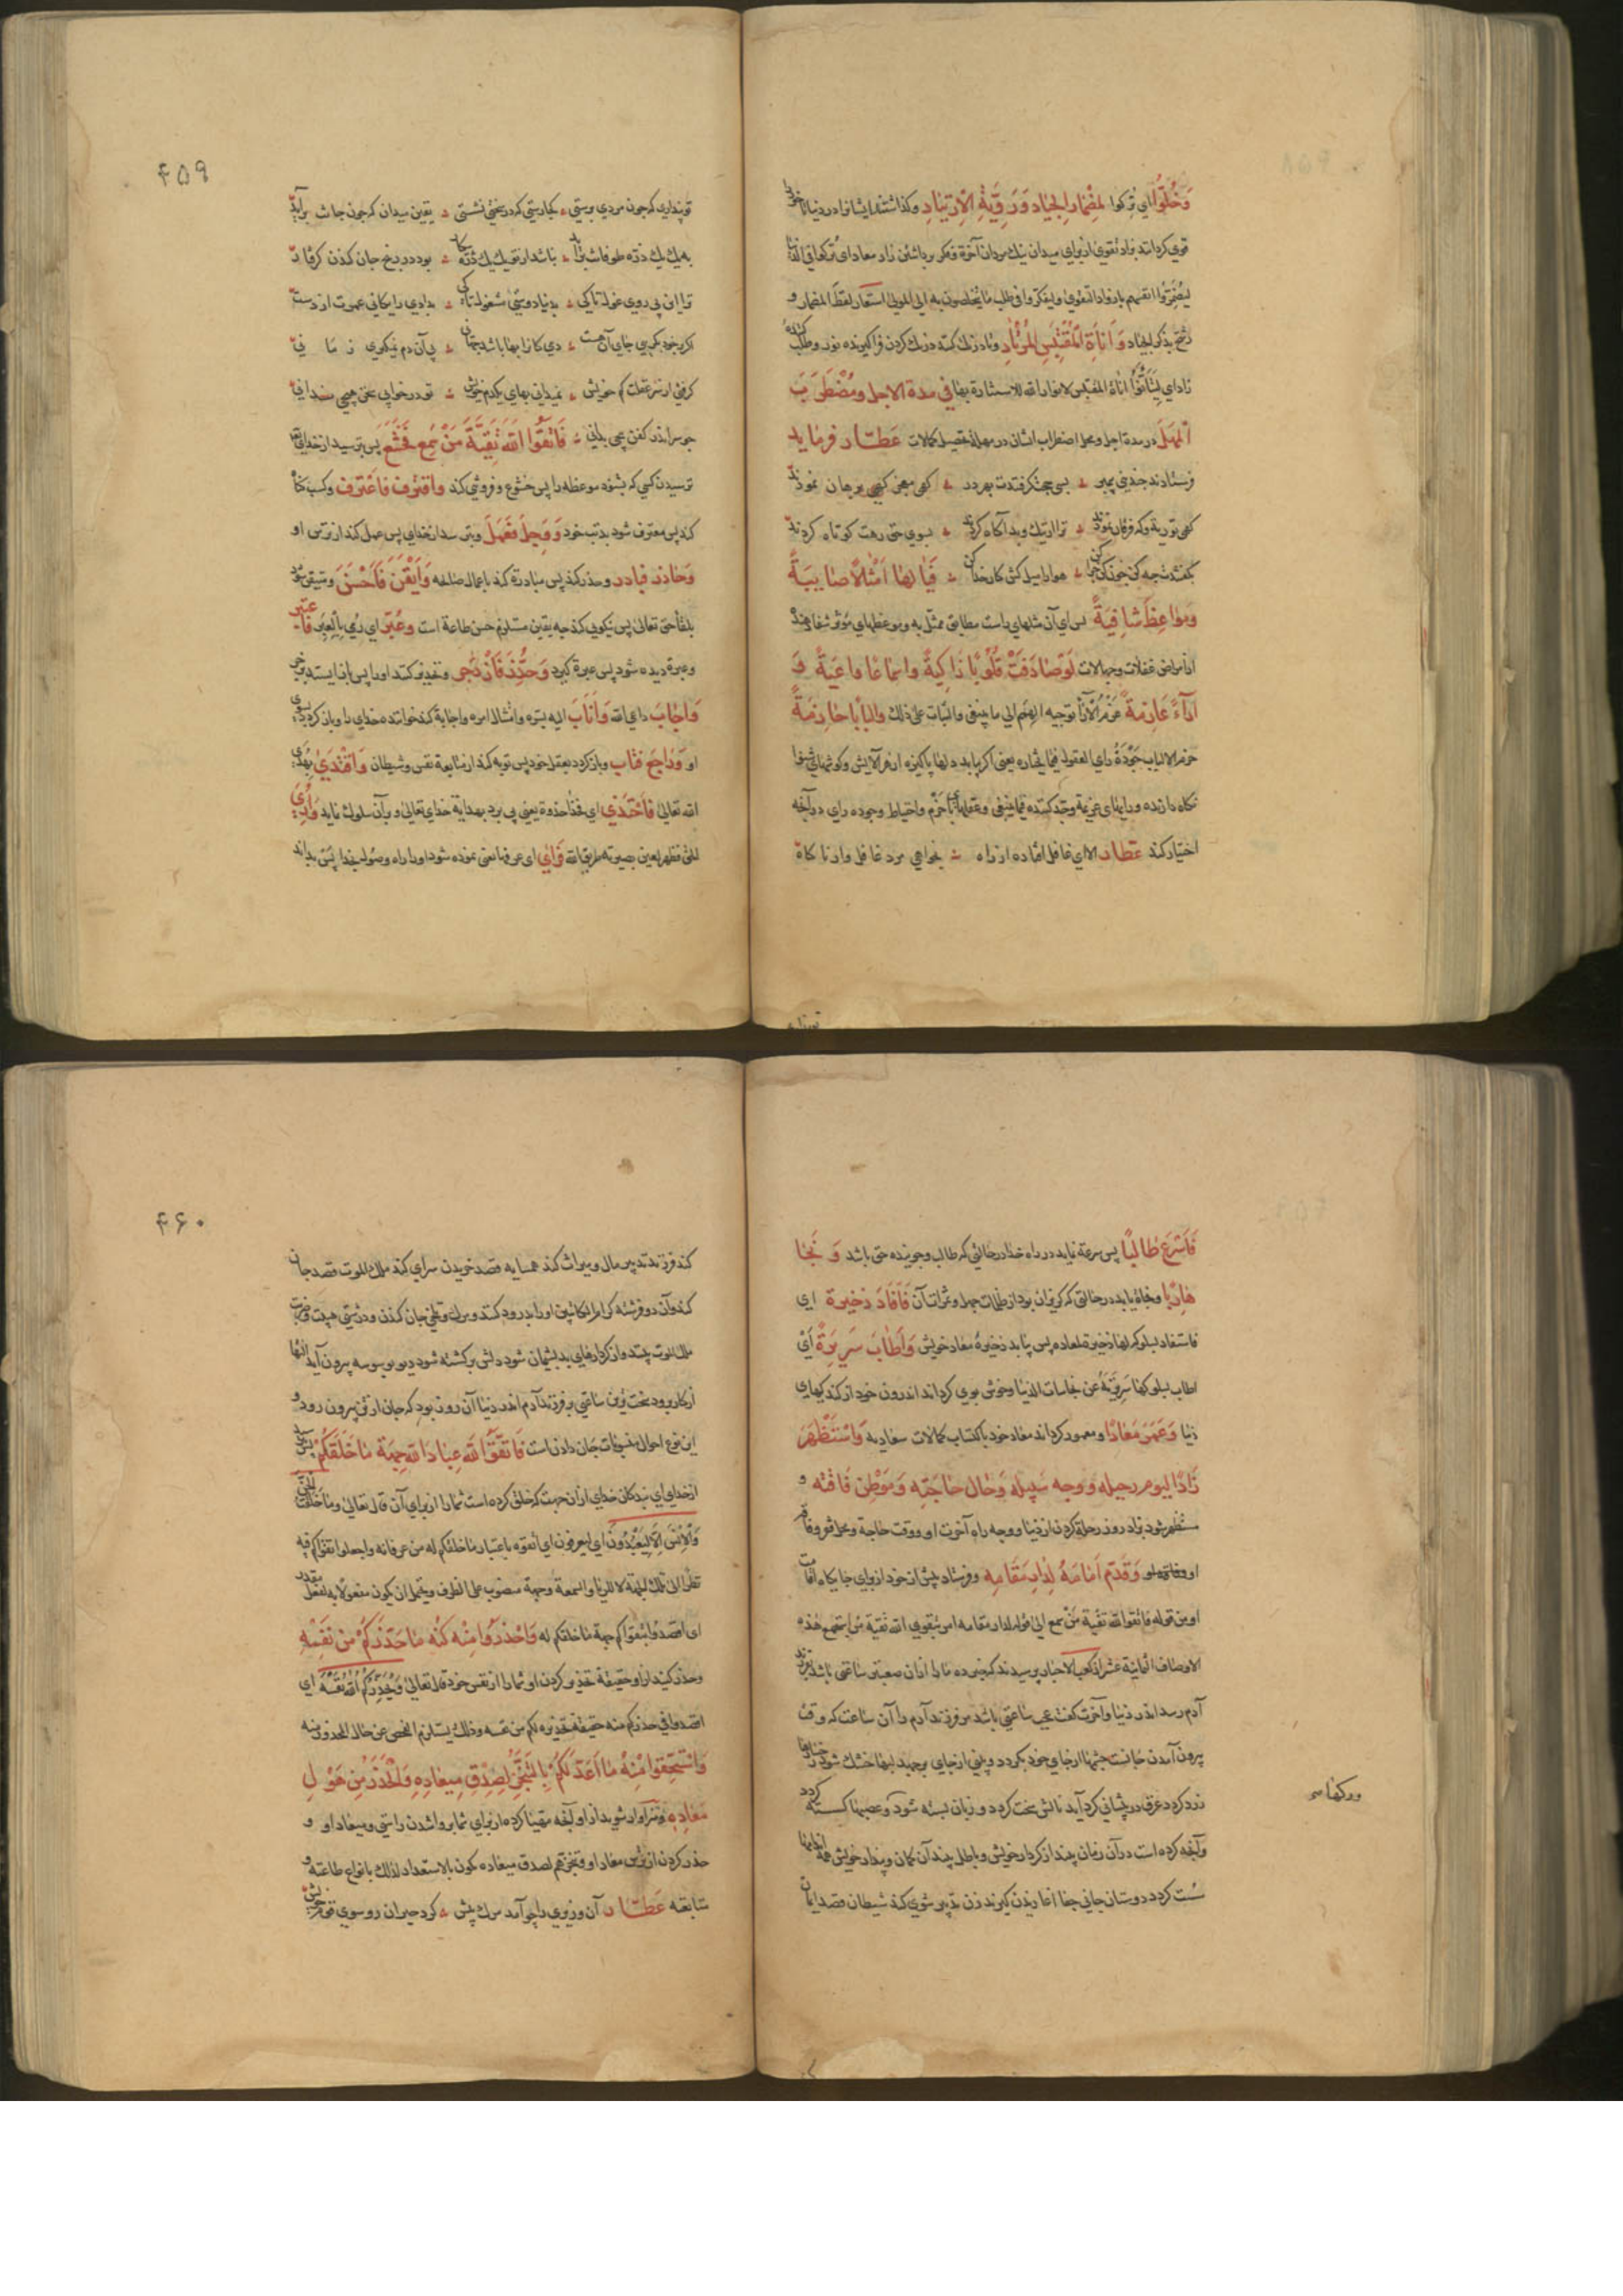 وَخُلّوُا اي تركوا لِمِضْمارِ الجِیاد وَ رَوِیَّةِ الاِرتیٰادِ وکذاشتند ایشانرا در دنیا تا خود را
قوی کردانند بزاد تقوی از برای میدان نیك مردان آخرة و فکر برداشتن زاد معاد ای ترکهم فی الدنیا
لیضمروا انفسهم بازواد التقوی ولیفکروا فی طلب ما یتخلصون به الی المولی استعار لفظ المضمار و
رشح بذکر الجیاد وَ اَناةِ المُقْتَبِسِ المُرتْاٰدِ و با درنك کننده درنك کردن فراکیرنده نور و طلب کننده
زاد ای لِیَتَأَنَّوْا اناة المقتبس لانوار الله للاستنارة بها فی مدة الاجل ومُضْطَرَبَ
اَلمهَلَ در مدة اجل و محل اضطراب ایشان در مهلة تحصیل کمالات عَطّار فرماید
فرستادند چندینی پیمبر ؞ بسی حجت کرفتندت بهر در ؞ کهی معجز کهی برهان نمودند
کهی توریة و که فرقان نمودند ؞ ترا از نیك و بد آکاه کردند ؞ بسوی حق رهت کوتاه کردند
بکفتندت چه کن چون کن چرا کن ؞ هوا را میل کش کار خدا کن ؞ فَیٰا لهٰا اَمْثٰالاً صٰایِبَةً
وَمَوٰاعِظَ شٰافِیَةً پس ای آن مثلهای راست مطابق ممثل به و موعظهای مؤثر شفا دهنده
از امراض غفلات و جهالات لَوْصٰادَفَتْ قُلُوبًا زٰاکِیَةً وَاسْمٰاعًا وٰاعِیَةً وَ
آرٰآءً عٰازِمَةً عَزْمُ الآراء توجیه الهمم الی ما ینبغی والثبات علی ذلك وَالبٰابًا حٰازِمَةً
حزم الالباب جَوْدَةُ رای العقول فیما یختاره یعنی اکر بیابد دلهای پاکیزه از هر آلایش و کوشهای شنوا
نکاه دارنده و رایهای عزیمة و جد کننده فیما ینبغی وعقلهای با حزم واحتیاط و جوده رای در آنچه
اختیار کند عَطار الا ای غافل افتاده از راه ؞ بخواهی مرد غافل وار ناکاه
۴۵۹
تو پنداری که چون مردی برستی ؞ کجا رستی که در سختی نشستی ؞ یقین میدان که چون جانت برآید
به هر یك ذره طوفانت بزاید ؞ باشد ار تو یك یك ذره کار ؞ بود در نزع جان کندن کرفتار
ترا این پی روی غول تا کی ؞ بدنیا دوستی مشغول تا کی ؞ بدادی رایکانی عمرت از دست
اکر بر خود بکریی جای آن هست ؞ دمی کانرا بها باشد جهانی ؞ پی آن دم نمیکویی زمانی
کرفتی از سر غفلت کم خویش ؞ نمیدانی بهای یکدم خویش ؞ تو در خوابی سخن هیچی نمیدانی
چو سر اندر کفن پیچی بدانی ؞ فَاتَّقُوا اللّٰهَ تَقِیَّةَ مَنْ سَمِعَ فَخَشَعَ پس بترسید از خدای تعالی
ترسیدن کسی که بشنود موعظه را پس خشوع و فروتنی کند وَاقْتَرَف فَاعْتَرَف وکسب کناه
کند پس معترف شود بذنب خود وَ وَجِلَ فَعَمِلَ و بترسد از خدای پس عمل کند از ترس او
وَحٰاذَر فَبادَر و حذر کند پس مبادرة کند باعمال صالحه وَاَیْقَنَ فَاَحْسَنَ و متیقن شود
بلقآء حق تعالی پس نیکویی کند چه یقین مستلزم حسن طاعة است وَعُبِّرَ ای رُمی بِالْعِبَر فَاعتَبر
و عبرة دیده شود پس عبرة کیرد وَحُذِّرَ فَازْدَجَر و تحذیر کنند او را پس باز ایستد بزجر
وَاجٰابَ داعی الله وَاَنٰابَ الیه بسره و امتثال امره واجابة کند خواننده خدای را و باز کردد بسوی
او وَرٰاجَعَ فَتٰابَ و باز کردد بعقل خود پس توبه کند از متابعة نفس و شیطان وَاقْتَدیٰ بِهُدی
الله تعالی فَاحْتَذیٰ ای فَحذا حذوة یعنی پی برد بهدایة خدای تعالی و بر آن سلوك نماید وَ اُرِیَ
الحق فظهر لعین بصیرته طریق الله فَرَأیٰ ای عرفها یعنی نموده شود او را راه وصول بخدا پس بداند
فَاَسْرَعَ طٰالِبًا پس سرعة نماید در راه خدا در حالتی که طالب و جوینده حق باشد وَ نَجٰا
هٰارِبًا و نجاة یابد در حالتی که کریزان بود از ظلمات جهل و ثمرات آن فَاَفٰادَ ذَخیرة ای
فاستفاد بسلوکه لها ذخیرة لمعاده پس بیابد ذخیرۀ معاد خویش وَاَطٰابَ سَرِیرَةً اَیْ
اطاب بسلوکها سریرته عن نجاسات الدنیا وخوش بوی کرداند اندرون خود از کندکیهای
دنیا وَعَمَّرَ مَعٰادًا و معمور کرداند معاد خود باکتساب کمالات سعادیه وَاسْتَظْهَرَ
زٰادًا لِیومِ رحیلِه و وجه سَبِیلِه وَحٰال حٰاجَتِه وَ مَوْطِنِ فٰاقَتِه و
مستظهر شود بزاد روز رحلة کردن از دنیا و وجه راه آخرت او و وقت حاجة و محل فقر و فاقه
او وَقَدَّمَ اَمٰامَهُ لِدٰارِ مُقٰامِه و فرستاد پیش از خود از برای جایکاه اقامت
او من قوله فاتقوا الله تقیة من سمع الی قوله لدار مقامه امر بتقوی الله تقیة من استجمع هذه
الاوصاف الثمانیة عشر از کعب الاحبار پرسیدند که خبر ده ما را از آن صعبترین ساعتی باشد بر فرزند
آدم رسد اندر دنیا و آخرت کفت عجب ساعتی باشد مر فرزند آدم را آن ساعت که وقت
بیرون آمدن جانست چشمها از جای خود بکردد و بینی از جای برجهد لبها خشك شود
زرد کردد عرق در پیشانی کرد آید نالش سخت کردد و زبان بسته شود و عصبها کسسته کردد
و آنچه کرده است در آن زمان بیند از کردار خویش و باطل بیند آن کمان و پندار خویش همه اندامها
سست کردد دوستان جانی جفا آغازیدن کیرند زن تدبیر شوی کند شیطان قصد ایمان
ورکها سر
۴۶۰
کند فرزند تدبیر مال و میراث کند همسایه قصد خریدن سرای کند ملك الموت قصد جان
کند و آن دو فرشته کراما کاتبین او را بدرود کنند و مرك و تلخی جان کندن و درشتی هیبت و ضربت
ملك الموت بیند و از کردارهای بد پشیمان شود دلش برکشته شود دیو بوسوسه بیرون آید زبانها
از کار برود سخت ترین ساعتی بر فرزند آدم اندر دنیا آن روز بود که جان از تن بیرون رود و
این نوع احوال صعوبات جان دادن است فَاتَّقُوا اللهَ عِبٰادَ اللهِ جِهَةَ مٰا خَلَقَکُمْ بترسید
از خدای ای بندکان خدای از آن جهت که خلق کرده است شما را از برای آن قال تعالی وَمٰا خَلَقْتُ الْجِنَّ
وَالْاِنْسَ اِلاّٰ لِیَعْبُدُونِ ای لیعرفون ای اتقوه باعتبار ما خلقکم له من عرفانه واجعلوا تقواکم فیه
نظرا الی تلك الجهة لا للریا والسمعة وجهة منصوب علی الظرف ویحتمل ان یکون مفعولا به لفعل مقدر
ای اقصدوا بتقواکم جهة ما خلقکم له وَاحْذَرُوا مِنْه کُنْهَ مٰا حَذَّرَکُمْ مِنْ نَفْسِهِ
و حذر کنید از او حقیقة تحذیر کردن او شما را از نفس خود قال تعالی وَیُحَذِّرُکُمُ اللّٰهُ نَفْسَهُ ای
اقصدوا فی حذرکم منه حقیقة تحذیره لکم من نفسه وذلك یستلزم الفحص عن حال المحذور منه
وَاسْتَحِقُّوا مِنْهُ مٰا اَعَدَّ لَکُمْ بِالتَّنَجُّزِ لِصِدْقِ مِیعٰادِهِ وَالْحَذَرِ مِنْ هَوْلِ
مَعٰادِهِ و سزاوار شوید از او آنچه مهیا کرده از برای شما بروا شدن راستی و میعاد او و
حذر کردن از ترس معاد او وتنجزهم لصدق میعاده یکون بالاستعداد لذلك بانواع طاعته و
متابعته عَطّار آن وزیری را چو آمد مرك پیش ؞ کرد حیران رو سوی قوم خویش